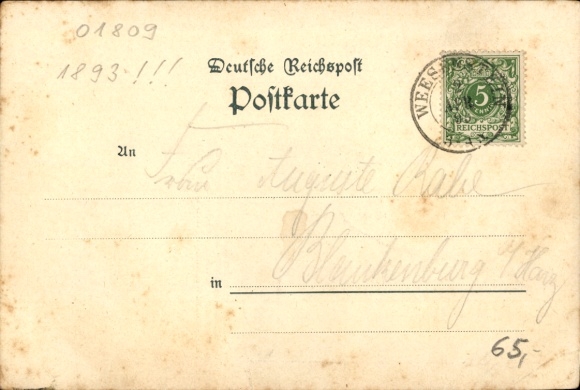 01809
1893-!!!
Deutsche Reichspost
Postkarte
5
REICHSPOST
An Frau Auguste Rabe
Blankenburg a/Harz
in
65,-